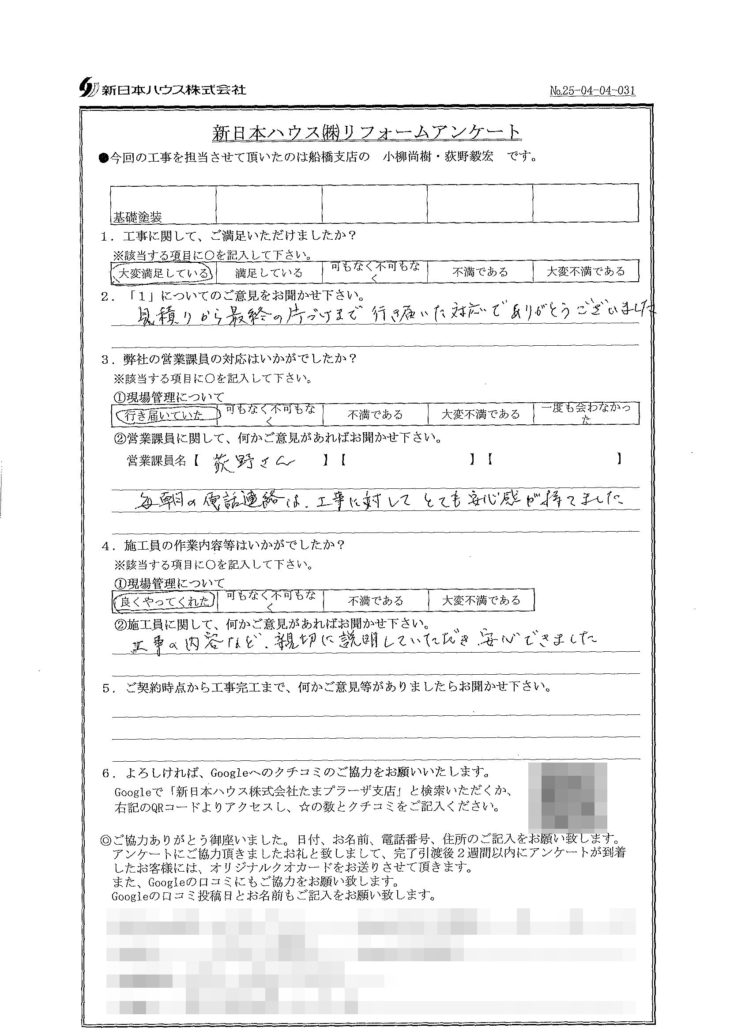 新日本ハウス株式会社
№25-04-04-031
新日本ハウス㈱リフォームアンケート
●今回の工事を担当させて頂いたのは船橋支店の 小柳尚樹・荻野毅宏 です。
基礎塗装
1．工事に関して、ご満足いただけましたか？
※該当する項目に○を記入して下さい。
大変満足している 満足している 可もなく不可もなく 不満である 大変不満である
2．「1」についてのご意見をお聞かせ下さい。
見積りから最終の片づけまで行き届いた対応でありがとうございました
3．弊社の営業課員の対応はいかがでしたか？
※該当する項目に○を記入して下さい。
①現場管理について
行き届いていた 可もなく不可もなく 不満である 大変不満である 一度も会わなかった
②営業課員に関して、何かご意見があればお聞かせ下さい。
営業課員名【 荻野さん 】【 】【 】
毎朝の電話連絡は、工事に対してとても安心感が持てました
4．施工員の作業内容等はいかがでしたか？
※該当する項目に○を記入して下さい。
①現場管理について
良くやってくれた 可もなく不可もなく 不満である 大変不満である
②施工員に関して、何かご意見があればお聞かせ下さい。
工事の内容など、親切に説明していただき、安心できました
5．ご契約時点から工事完工まで、何かご意見等がありましたらお聞かせ下さい。
6．よろしければ、Googleへのクチコミのご協力をお願いいたします。
Googleで「新日本ハウス株式会社たまプラーザ支店」と検索いただくか、
右記のQRコードよりアクセスし、☆の数とクチコミをご記入ください。
◎ご協力ありがとう御座いました。日付、お名前、電話番号、住所のご記入をお願い致します。
アンケートにご協力頂きましたお礼と致しまして、完了引渡後2週間以内にアンケートが到着
したお客様には、オリジナルクオカードをお送りさせて頂きます。
また、Googleの口コミにもご協力をお願い致します。
Googleの口コミ投稿日とお名前もご記入をお願い致します。